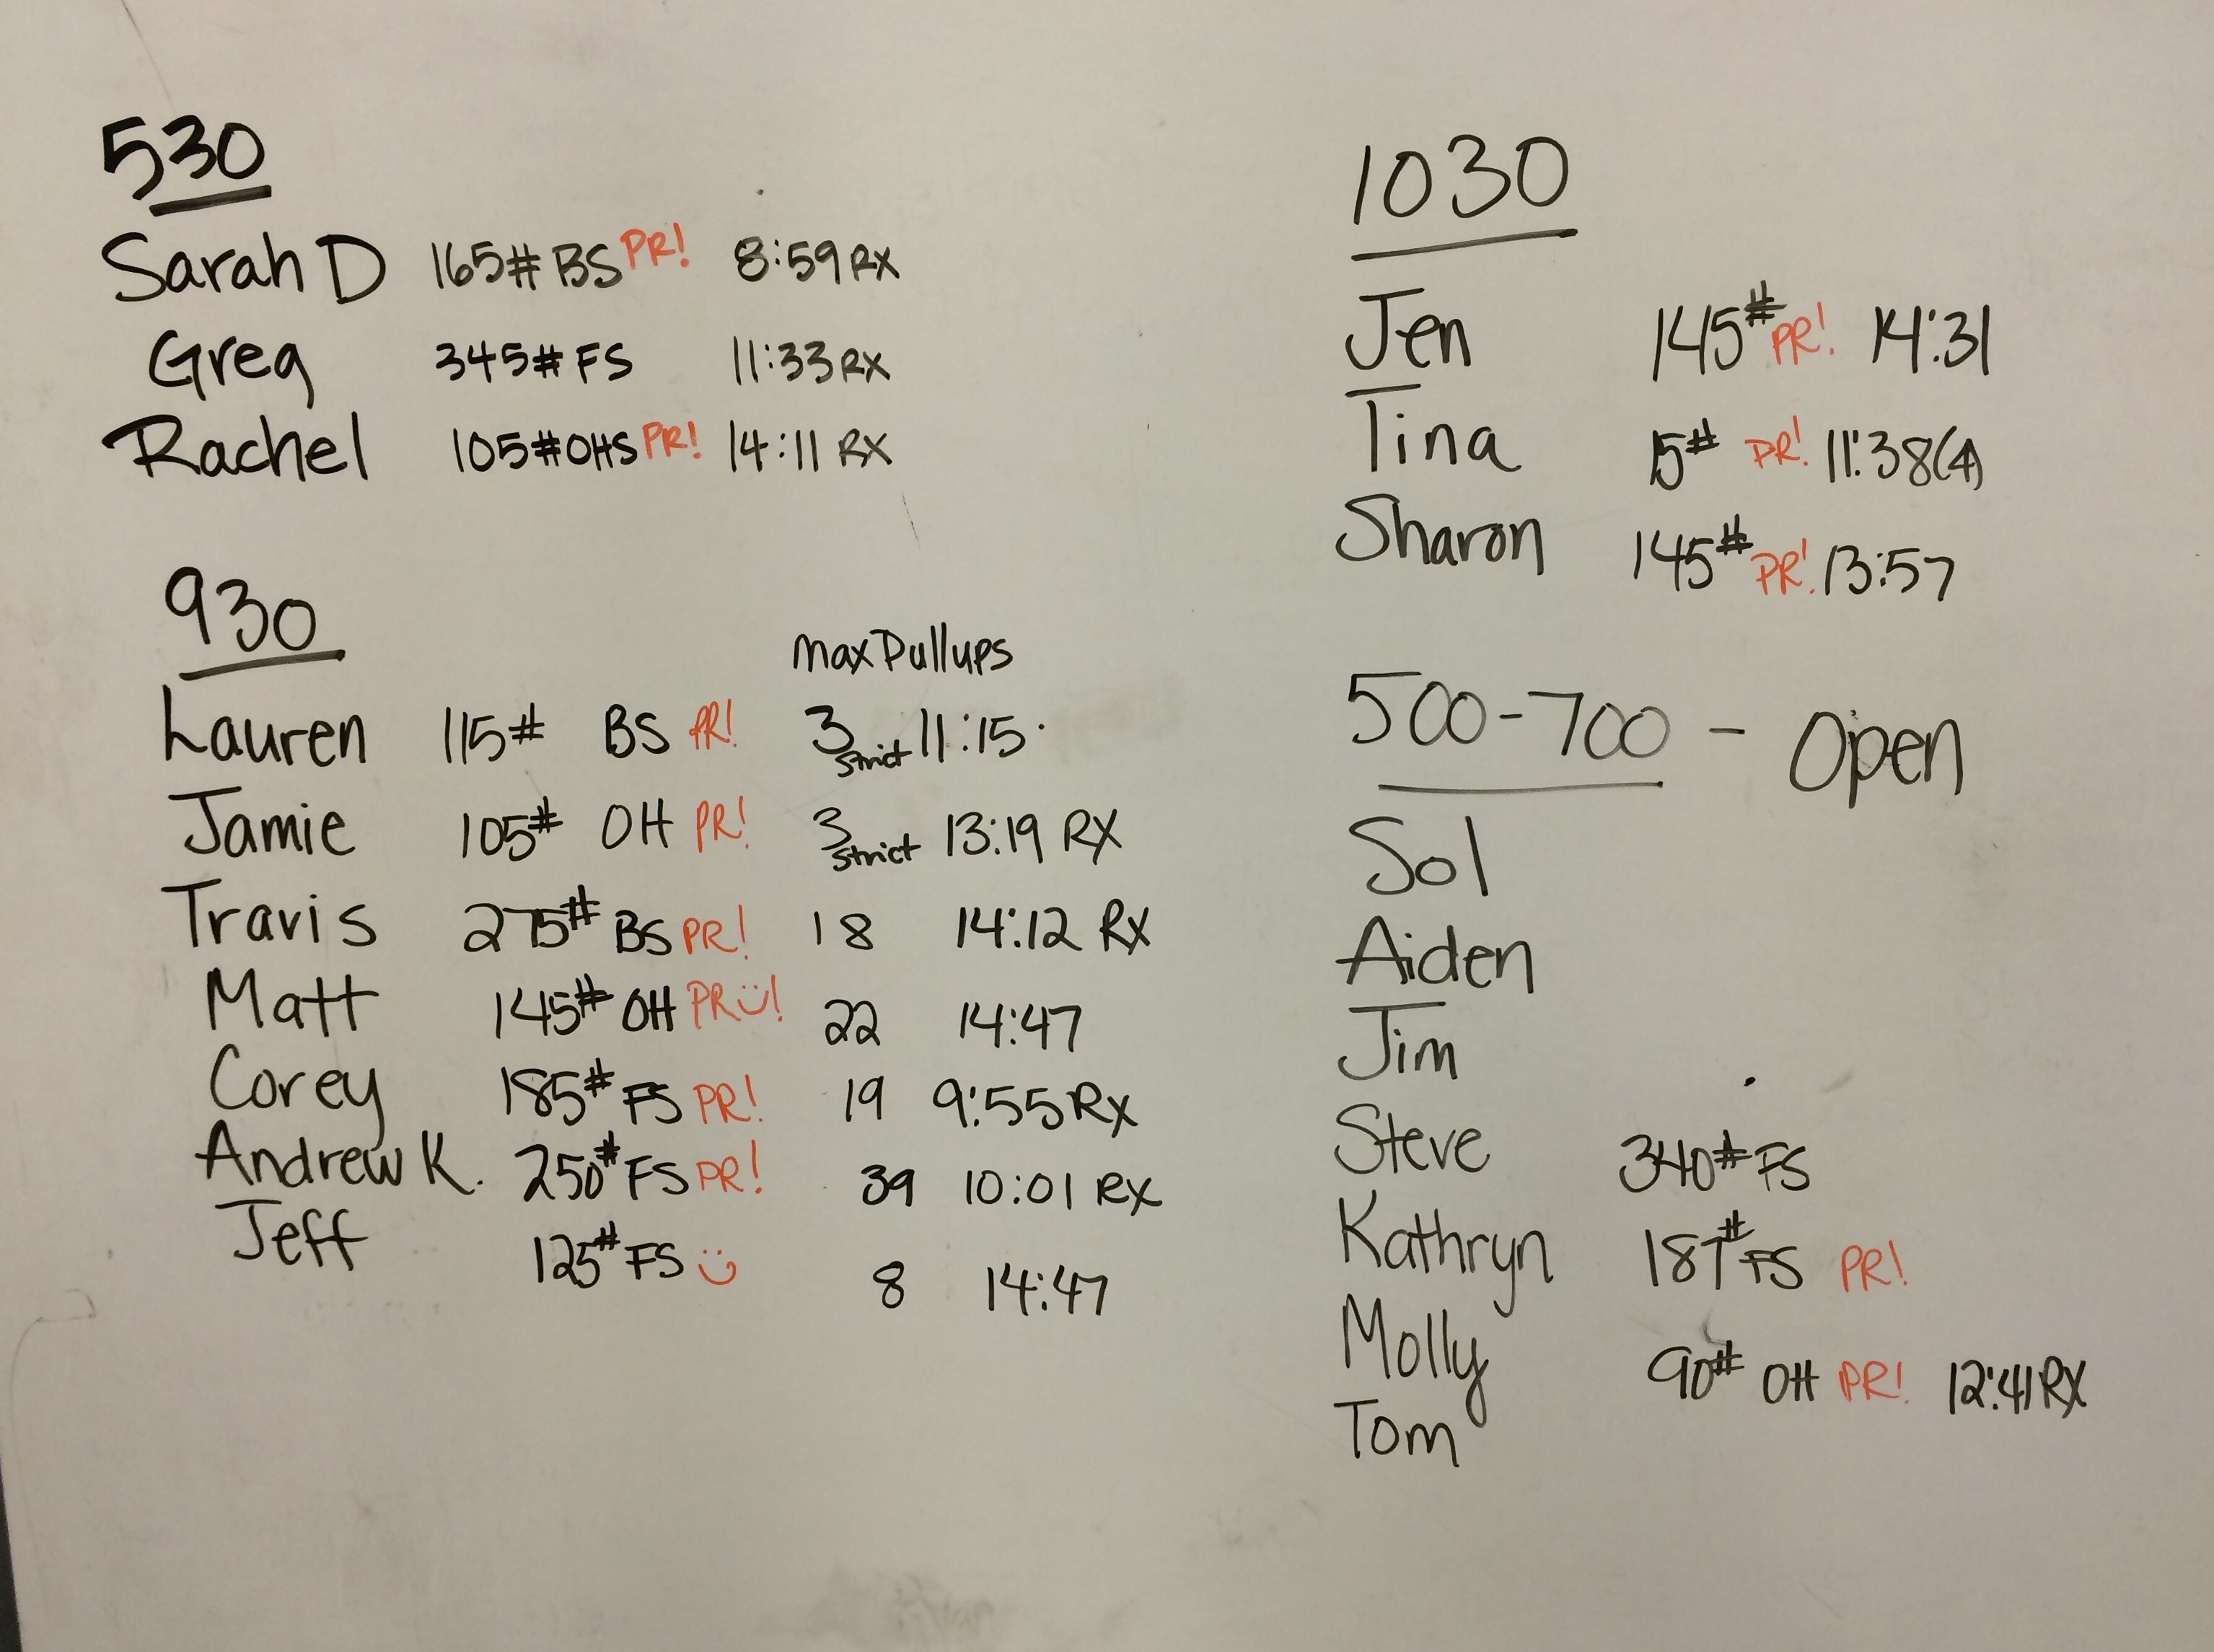 530
Sarah D 165# BS PR! 8:59 RX
Greg 345# FS 11:33 RX
Rachel 105# OHS PR! 14:11 RX
930
max Pullups
Lauren 115# BS PR! 3 strict 11:15
Jamie 105# OH PR! 3 strict 13:19 RX
Travis 275# BS PR! 18 14:12 RX
Matt 145# OH PR! 22 14:47
Corey 185# FS PR! 19 9:55 Rx
Andrew K. 250# FS PR! 39 10:01 RX
Jeff 125# FS 8 14:47
1030
Jen 145# PR! 14:31
Tina 15# PR! 11:38(4)
Sharon 145# PR! 13:57
500-700 - Open
Sol
Aiden
Jim
Steve 340# FS
Kathryn 187# FS PR!
Molly 90# OH PR! 12:41 RX
Tom